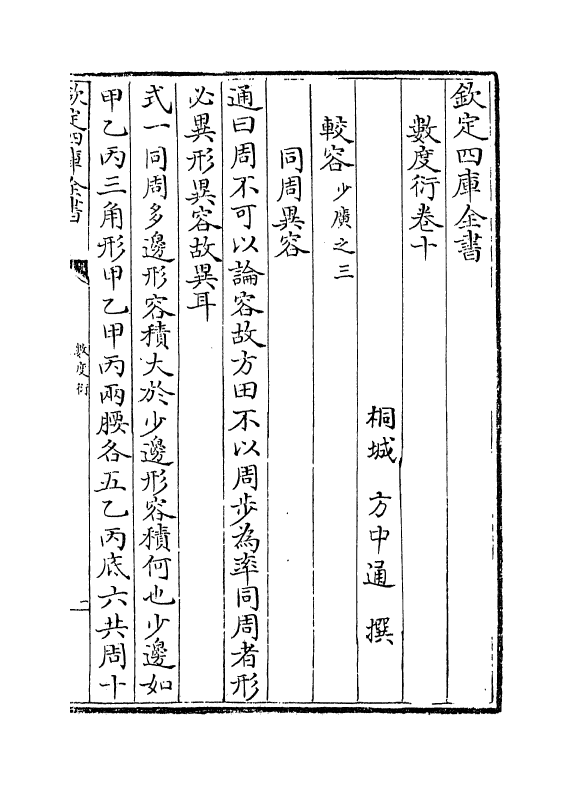 欽定四庫全書
數度衍卷十
桐城 方中通 撰
較容少廣之三
同周異容
通曰周不可以論容故方田不以周歩為率同周者形
必異形異容故異耳
式一同周多邊形容積大於少邊形容積何也少邊如
甲乙丙三角形甲乙甲丙兩腰各五乙丙底六共周十
欽定四庫全書
數度衍
一